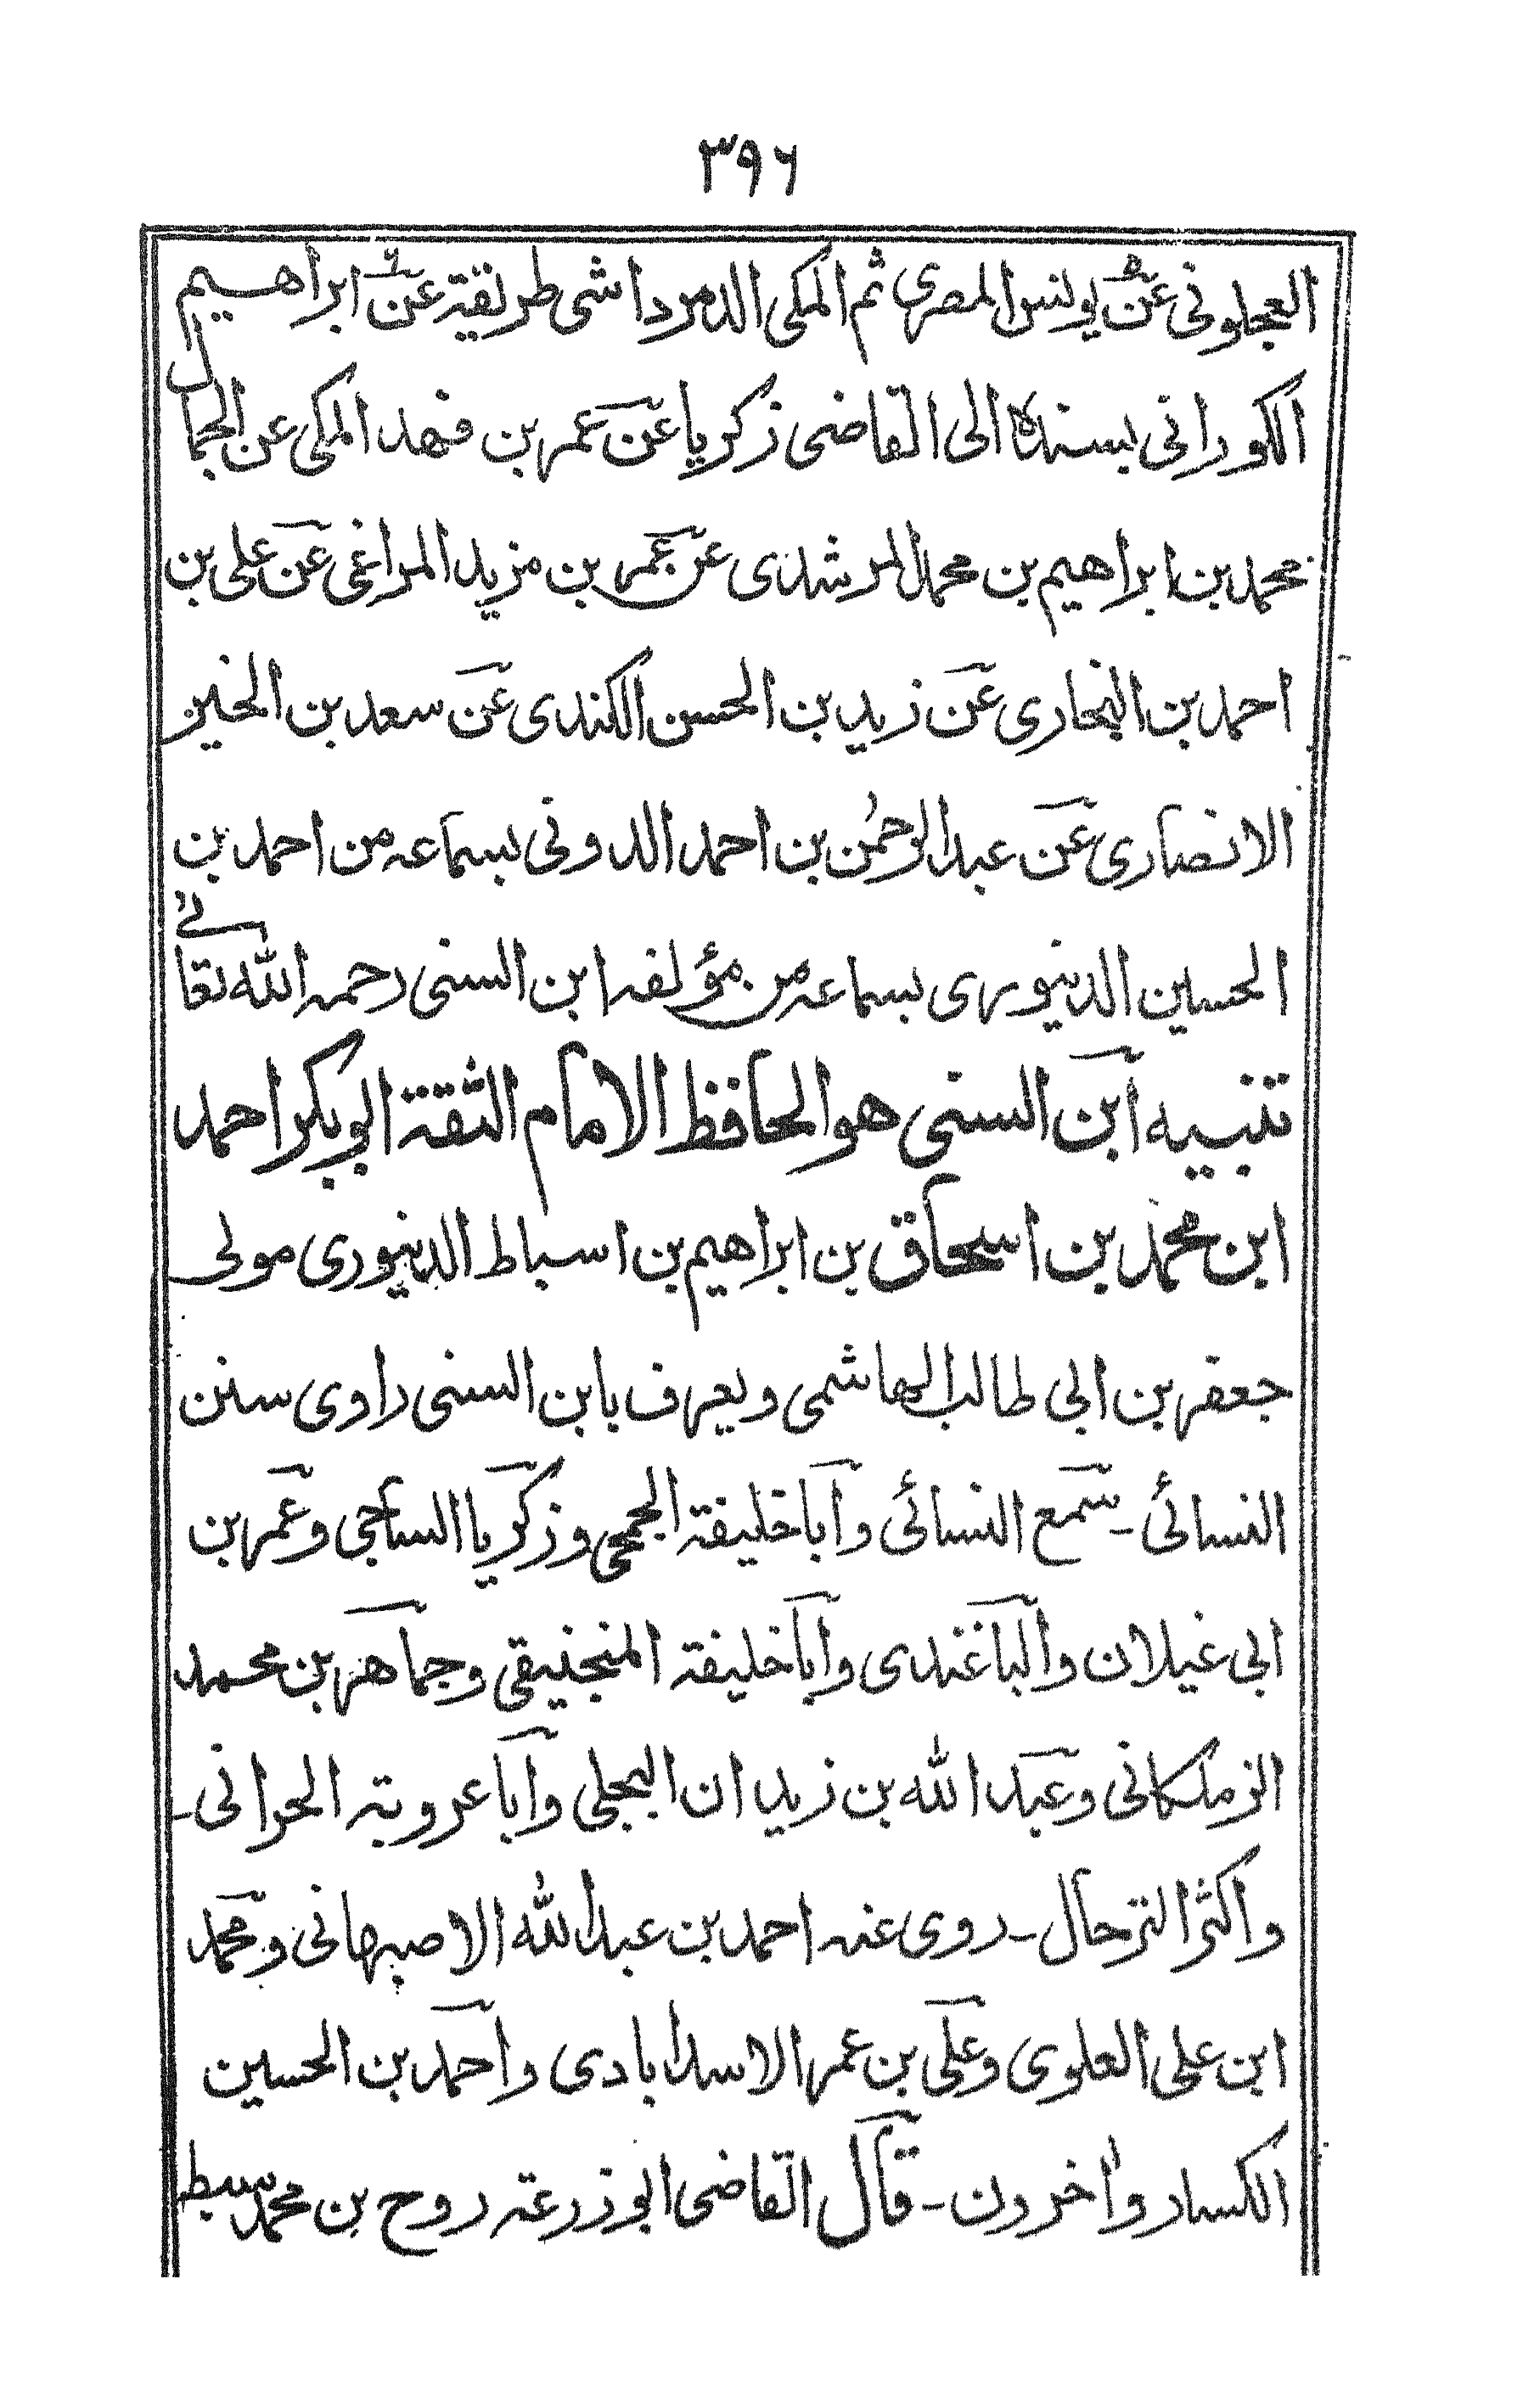 ٣٩٦
العجلونی عن یونس المصری ثم المکی الدمرداشی طریقة عن ابراهیم
الکورانی بسنده الی القاضی زکریا عن عمر بن فهد المکی عن الجمال
محمد بن ابراهیم بن محمد المرشدی عن عمر بن مزید المراغی عن علی بن
احمد بن البخاری عن زید بن الحسن الکندی عن سعد بن الخیر
الانصاری عن عبد الرحمٰن بن احمد الدونی بسماعه من احمد بن
الحسین الدینوری بسماعه من مؤلفه ابن السنی رحمه الله تعالی
تنبیه ابن السنی هو الحافظ الامام الثقة ابو بکر احمد
ابن محمد بن اسحاق بن ابراهیم بن اسباط الدینوری مولی
جعفر بن ابی طالب الهاشمی و یعرف بابن السنی راوی سنن
النسائی ۔ سمع النسائی و ابا خلیفة الجمحی و زکریا الساجی و عمر بن
ابی غیلان و الباغندی و ابا خلیفة المنجنیقی و جماهر بن محمد
الزملکانی و عبد الله بن زیدان البجلی و ابا عروبة الحرانی ۔
و اکثر الترحال ۔ روی عنه احمد بن عبد الله الاصبهانی و محمد
ابن علی العلوی و علی بن عمر الاسدابادی و احمد بن الحسین
الکسار و اٰخرون ۔ قال القاضی ابو زرعة روح بن محمد سبط